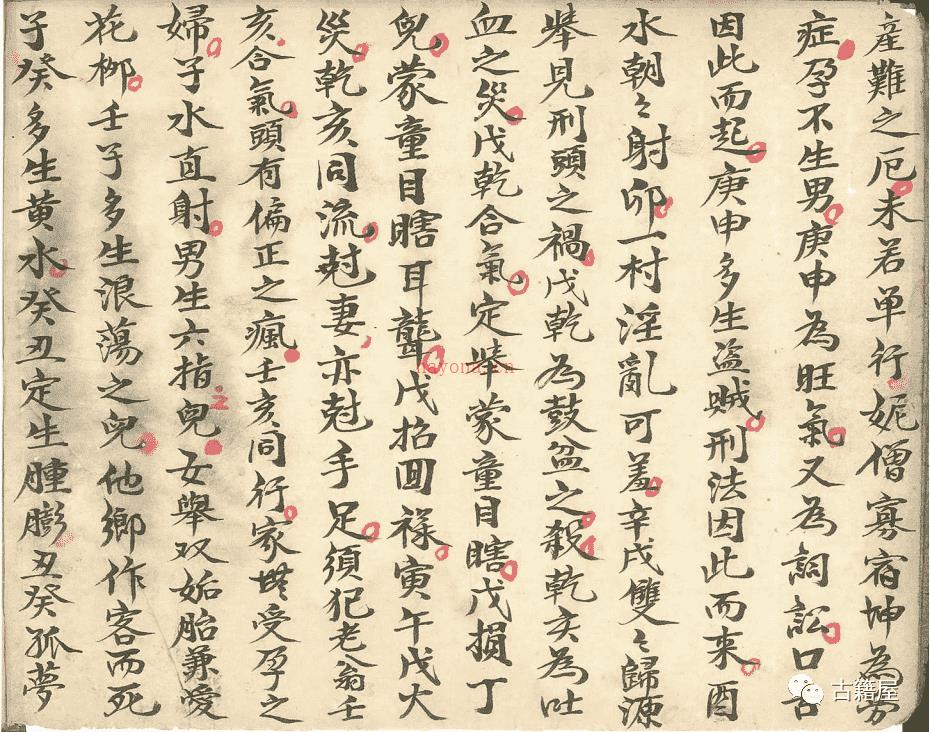 産難之厄未若单行妮僧寡宿坤為劳
症孕不生男庚申為旺氣又為詞訟口舌
因此而起庚申多生盗贼刑法因此而来酉
水朝々射卯一村淫亂可羞辛戌雙々歸源
犖見刑頭之禍戊乾為鼓盆之殺乾亥為吐
血之災戊乾合氣定犖蒙童目瞎戊損丁
兒蒙童目瞎耳聾戊招回禄寅午戊火
災乾亥同流尅妻亦尅手足須犯老翁壬
亥合氣頭有偏正之瘋壬亥同行家無受孕之
婦子水直射男生六指兒之女舉双妬胎兼愛
花柳壬子多生浪蕩之兒他鄉作客而死
子癸多生黄水癸丑定生腫膨丑癸孤夢
nayona.cn
古籍屋